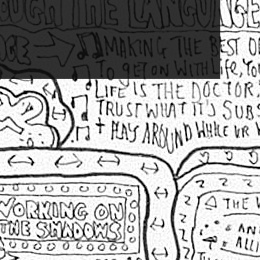 OUGH THE LANGUAGE
MAKING THE BEST OF
TO GET ON WITH LIFE, YO
LIFE IS THE DOCTOR
TRUST WHAT IT'S SUBS
+ PLAY AROUND WHILE UR
WORKING ON
THE SHADOWS
THE
= ALL